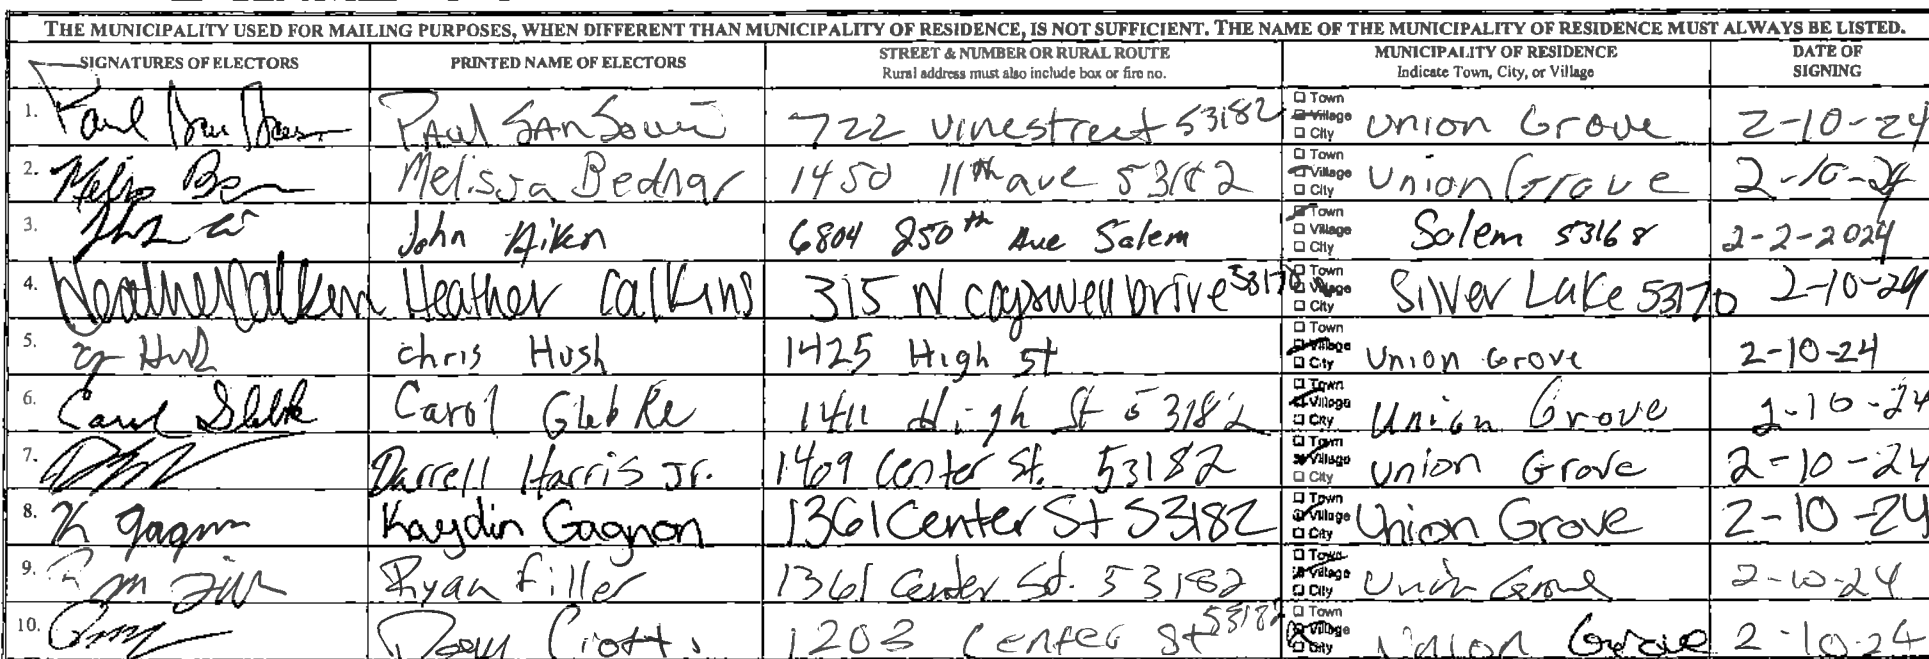 THE MUNICIPALITY USED FOR MAILING PURPOSES, WHEN DIFFERENT THAN MUNICIPALITY OF RESIDENCE, IS NOT SUFFICIENT. THE NAME OF THE MUNICIPALITY OF RESIDENCE MUST ALWAYS BE LISTED.
SIGNATURES OF ELECTORS PRINTED NAME OF ELECTORS STREET & NUMBER OR RURAL ROUTE MUNICIPALITY OF RESIDENCE DATE OF
Rural address must also include box or fire no. Indicate Town, City, or Village SIGNING
1. Paul PAul SANSouci 722 vinestreet 53182 Town Village City Union Grove 2-10-24
2. Melissa Bednar 1450 11th ave 53182 Town Village City Union Grove 2-10-24
3. John Aiken 6804 250th Ave Salem Town Village City Salem 53168 2-2-2024
4. Heather Calkins Heather Calkins 315 N cogswell Drive 53170 Town Village City Silver Lake 53170 2-10-24
5. Hush chris Hush 1425 High St Town Village City Union Grove 2-10-24
6. Carol Carol Glebke 1411 High St 53182 Town Village City Union Grove 2-10-24
7. Darrell Harris Jr. 1409 Center St. 53182 Town Village City Union Grove 2-10-24
8. K Gagnon Kaydin Gagnon 1361 Center St 53182 Town Village City Union Grove 2-10-24
9. Ryan Filler 1361 Center St. 53182 Town Village City Union Grove 2-10-24
10. 1203 Center St 53182 Town Village City Union Grove 2-10-24